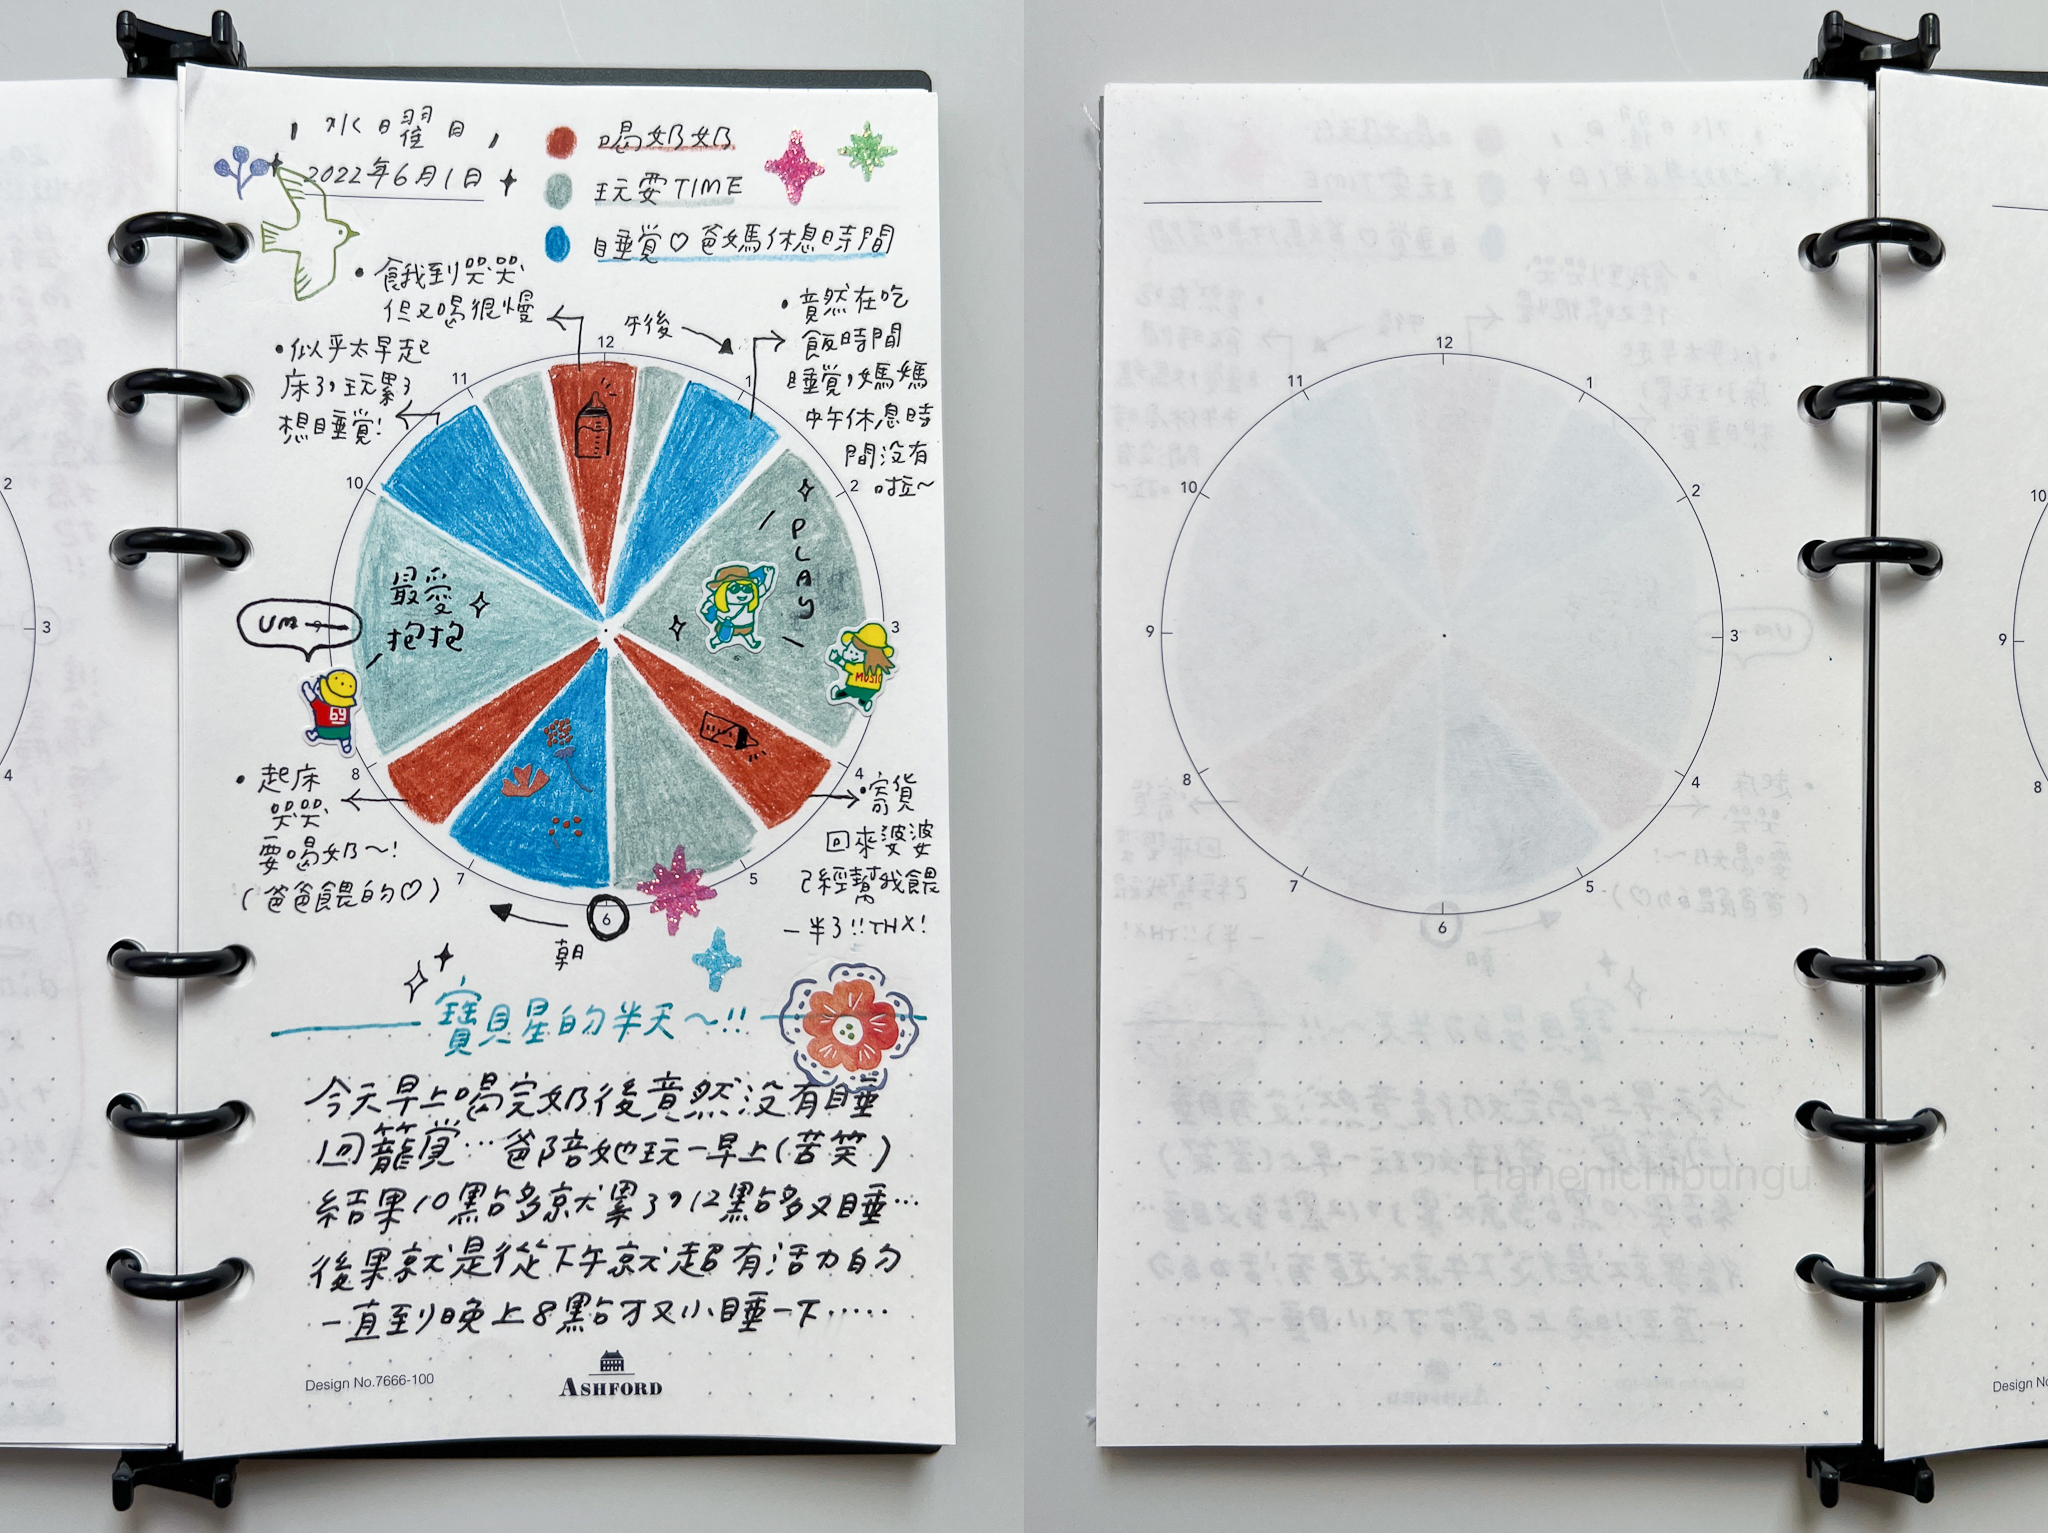 水曜日
2022年6月1日
喝奶奶
玩耍TIME
睡覚♡爸媽休息時間
•餓我到哭哭
但又喝很慢
午後
•竟然在吃
飯時間
睡覚,媽媽
中午休息時
間没有
啦~
•似乎太早起
床了,玩累了
想睡覚!
12
1
2
3
4
5
6
7
8
10
11
PLAY
最愛
抱抱
um
69
MUSIC
•起床
哭哭
要喝奶~!
(爸爸餵的♡)
•寄貨
回來婆婆
已經幫我餵
一半了!!THX!
朝
寶貝星的半天~!!
今天早上喝完奶後竟然没有睡
回籠覚…爸陪她玩一早上(苦笑)
結果10點多就累了,12點多又睡…
後果就是從下午就超有活力的
一直到晚上8點才又小睡一下……
Design No.7666-100
ASHFORD
2
3
4
12
1
2
3
4
5
6
7
8
9
10
11
Hanenichibungu
10
9
8
Design No